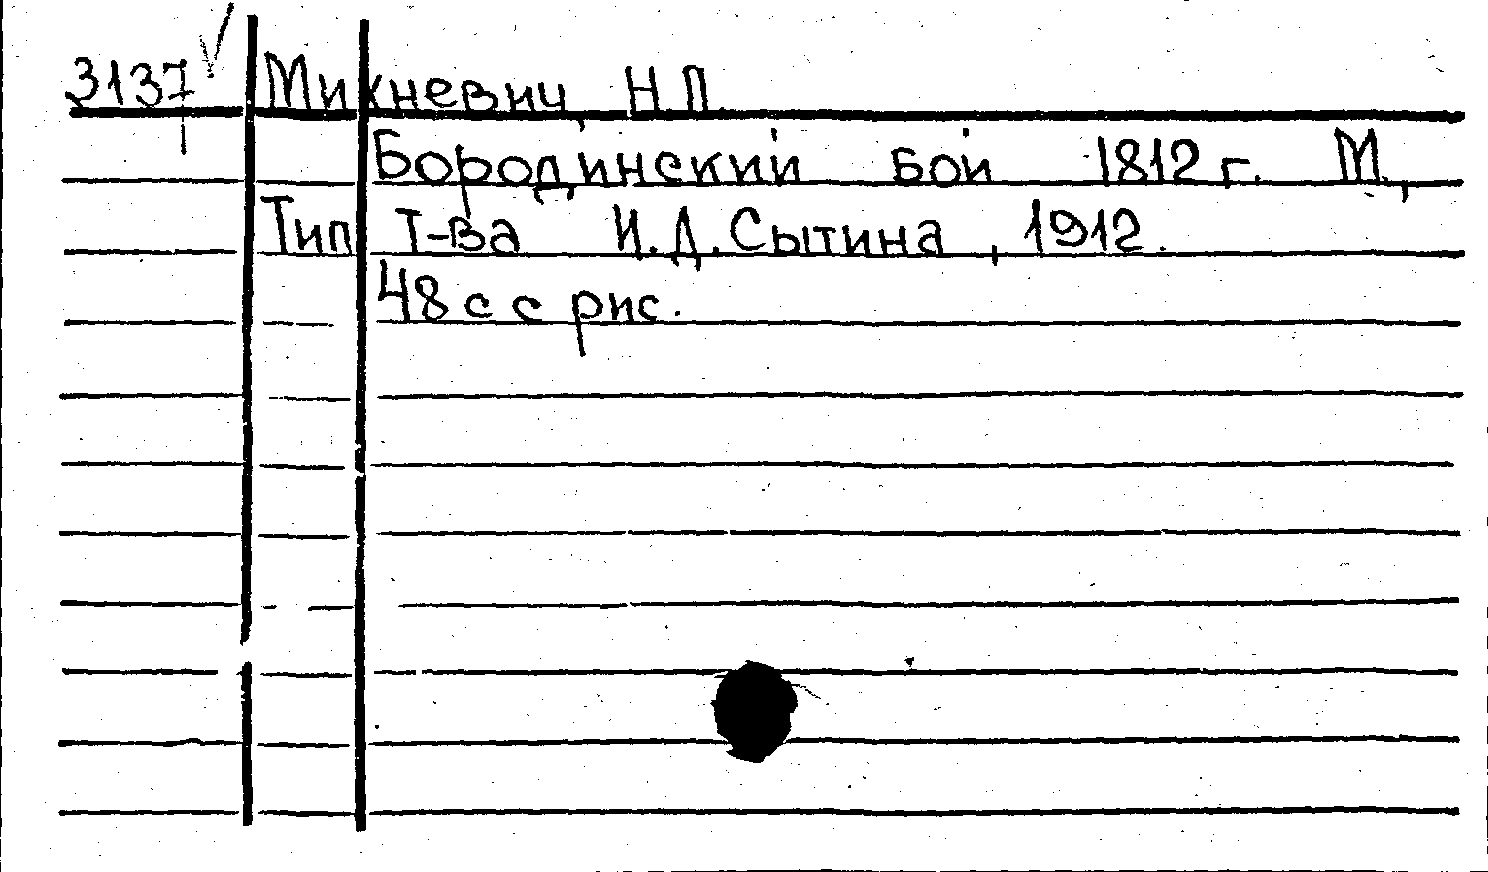 3137 Михневич, Н.П.
Бородинский бой 1812 г. М.,
Тип. Т-ва И.Д.Сытина, 1912.
48 с с рис.